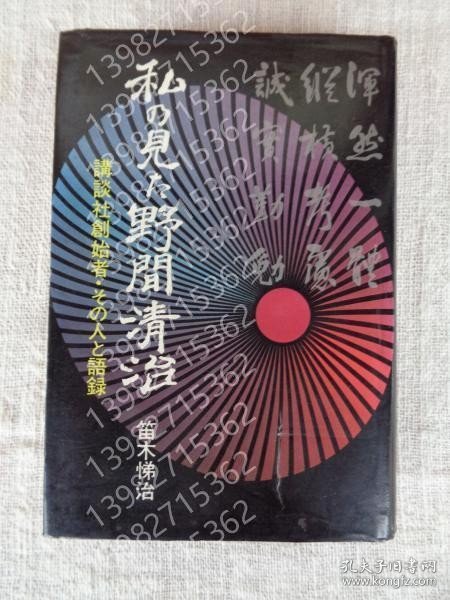 渾然一體
縱横考慮
誠實勤勉
私の見た野間清治
講談社創始者・その人と語録
笛木悌治
13982715362
13982715362
13982715362
13982715362
13982715362
13982715362
13982715362
13982715362
孔夫子旧书网
www.kongfz.com